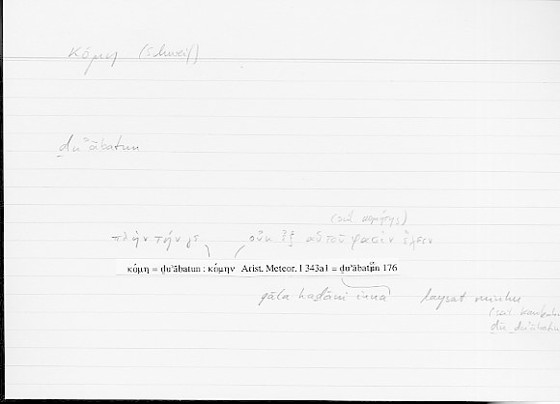 κόμη (Schweif)
ḏuʾābatun
(scil. κομήτης)
πλὴν τήν γε κόμην οὐκ ἐξ αὑτοῦ φασιν ἔχειν
κόμη = ḏuʾābatun : κόμην Arist. Meteor. I 343a1 = ḏuʾābatun 176
qāla hāḏāni inna laysat minhu
(scil. kaukabu
ḏū ḏuʾābatin